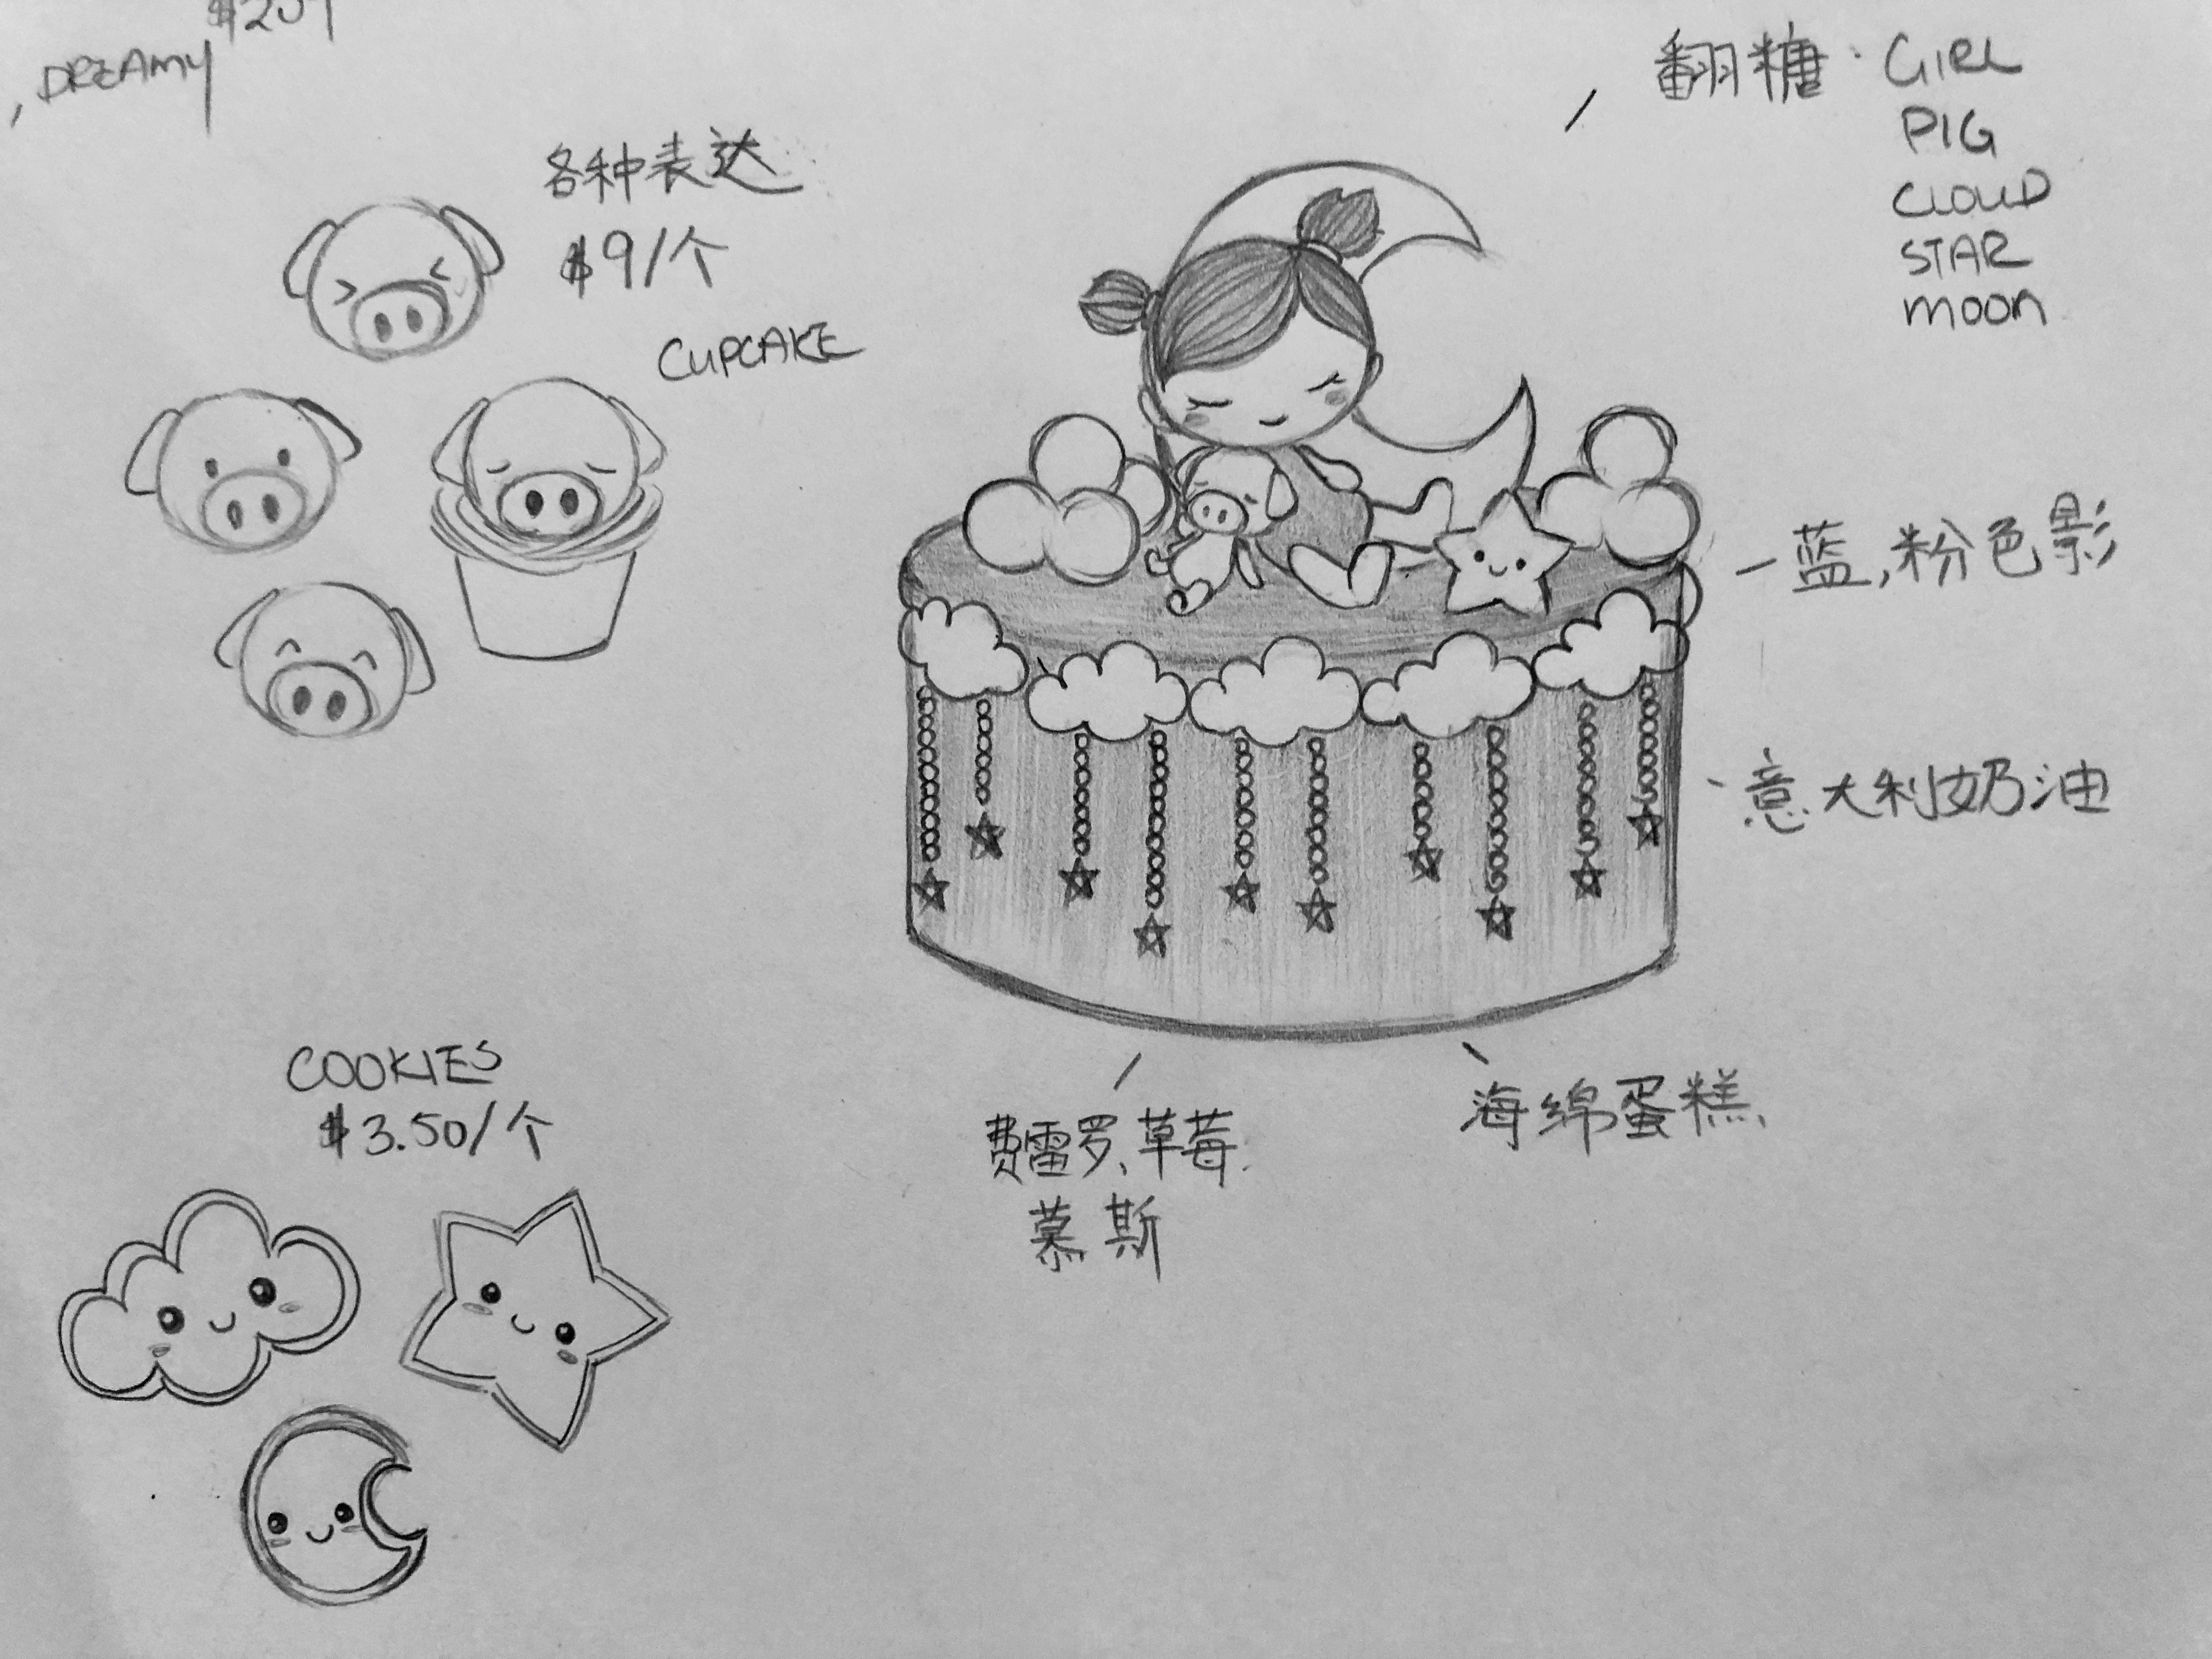 , DREAMY
各种表达
$9/个
CUPCAKE
翻糖: GIRL
PIG
CLOUD
STAR
moon
蓝,粉色影
意大利奶油
COOKIES
$3.50/个
费雷罗、草莓
慕斯
海绵蛋糕